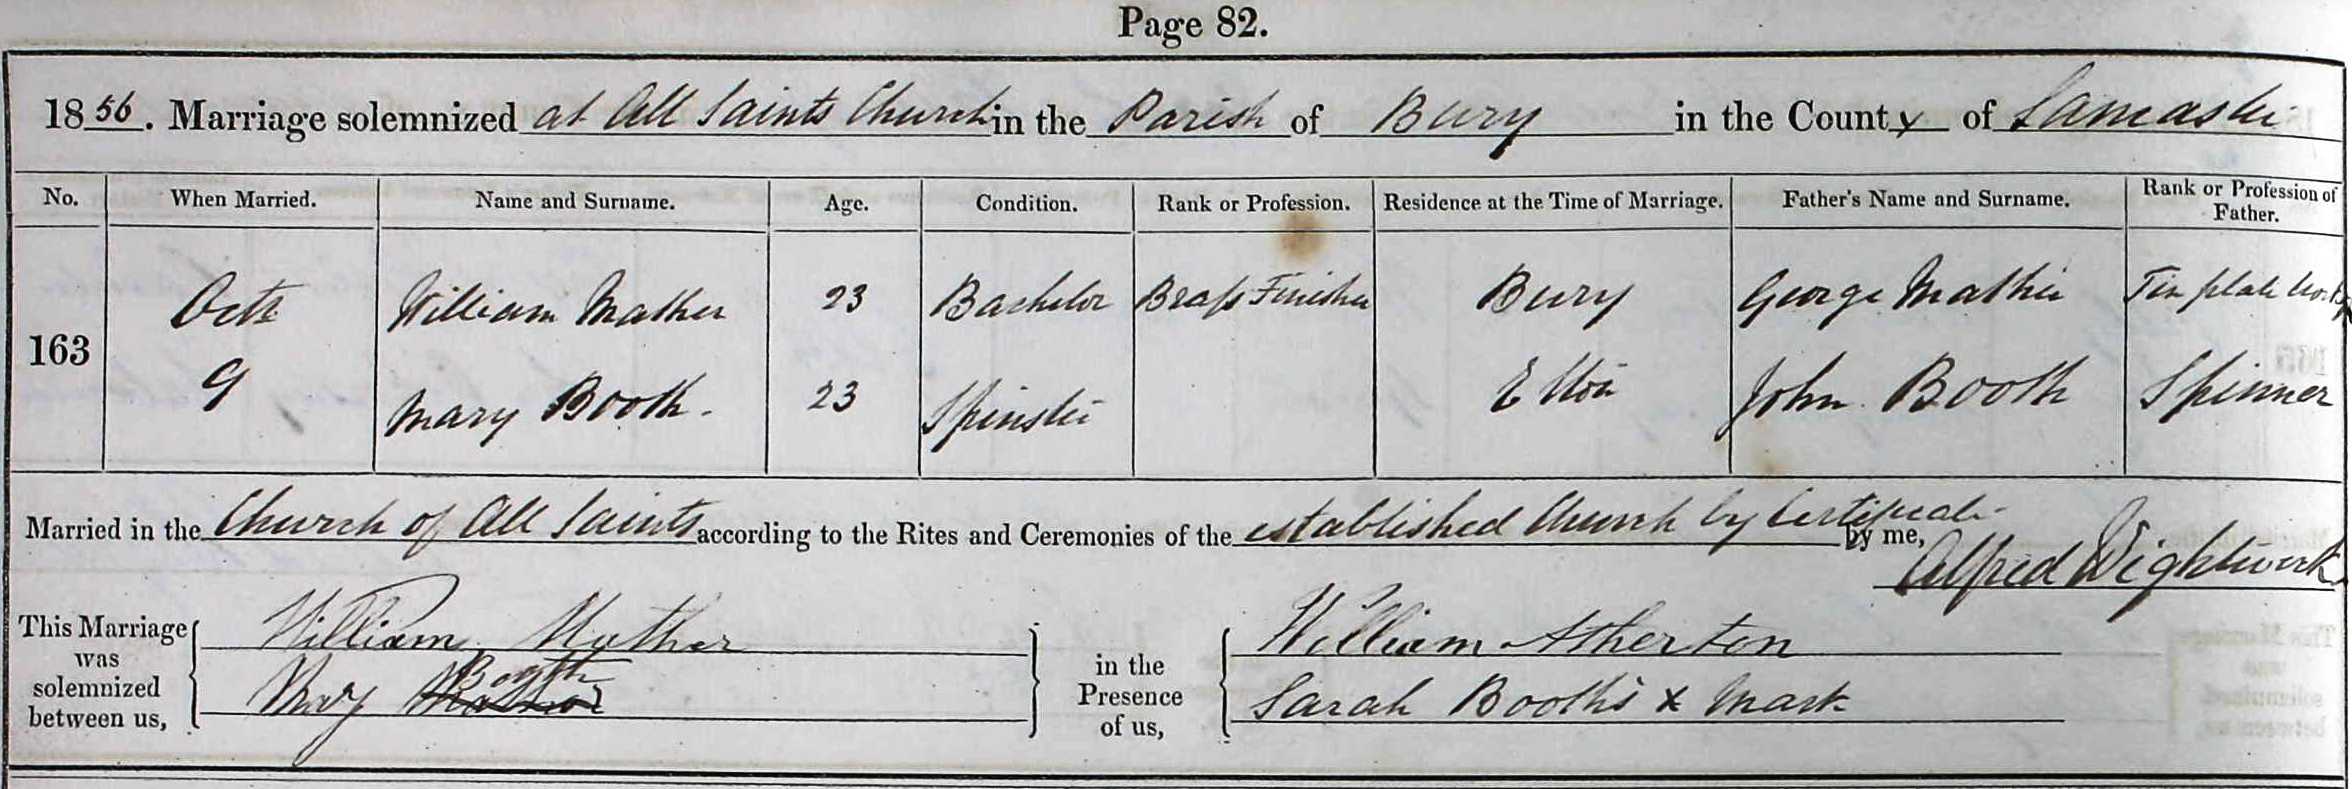 Page 82.
1856. Marriage solemnized at All Saints Church in the Parish of Bury in the County of Lancaster
No. When Married. Name and Surname. Age. Condition. Rank or Profession. Residence at the Time of Marriage. Father's Name and Surname. Rank or Profession of Father.
163
Octr William Mather 23 Bachelor Brass Finisher Bury George Mather Tin plate Worker
9 Mary Booth. 23 Spinster Elton John Booth Spinner
Married in the Church of All Saints according to the Rites and Ceremonies of the established Church by Certificate by me,
Alfred Wightwick
This Marriage was solemnized between us,
William Mather
Mary Booth
in the Presence of us,
William Atherton
Sarah Booth's x Mark